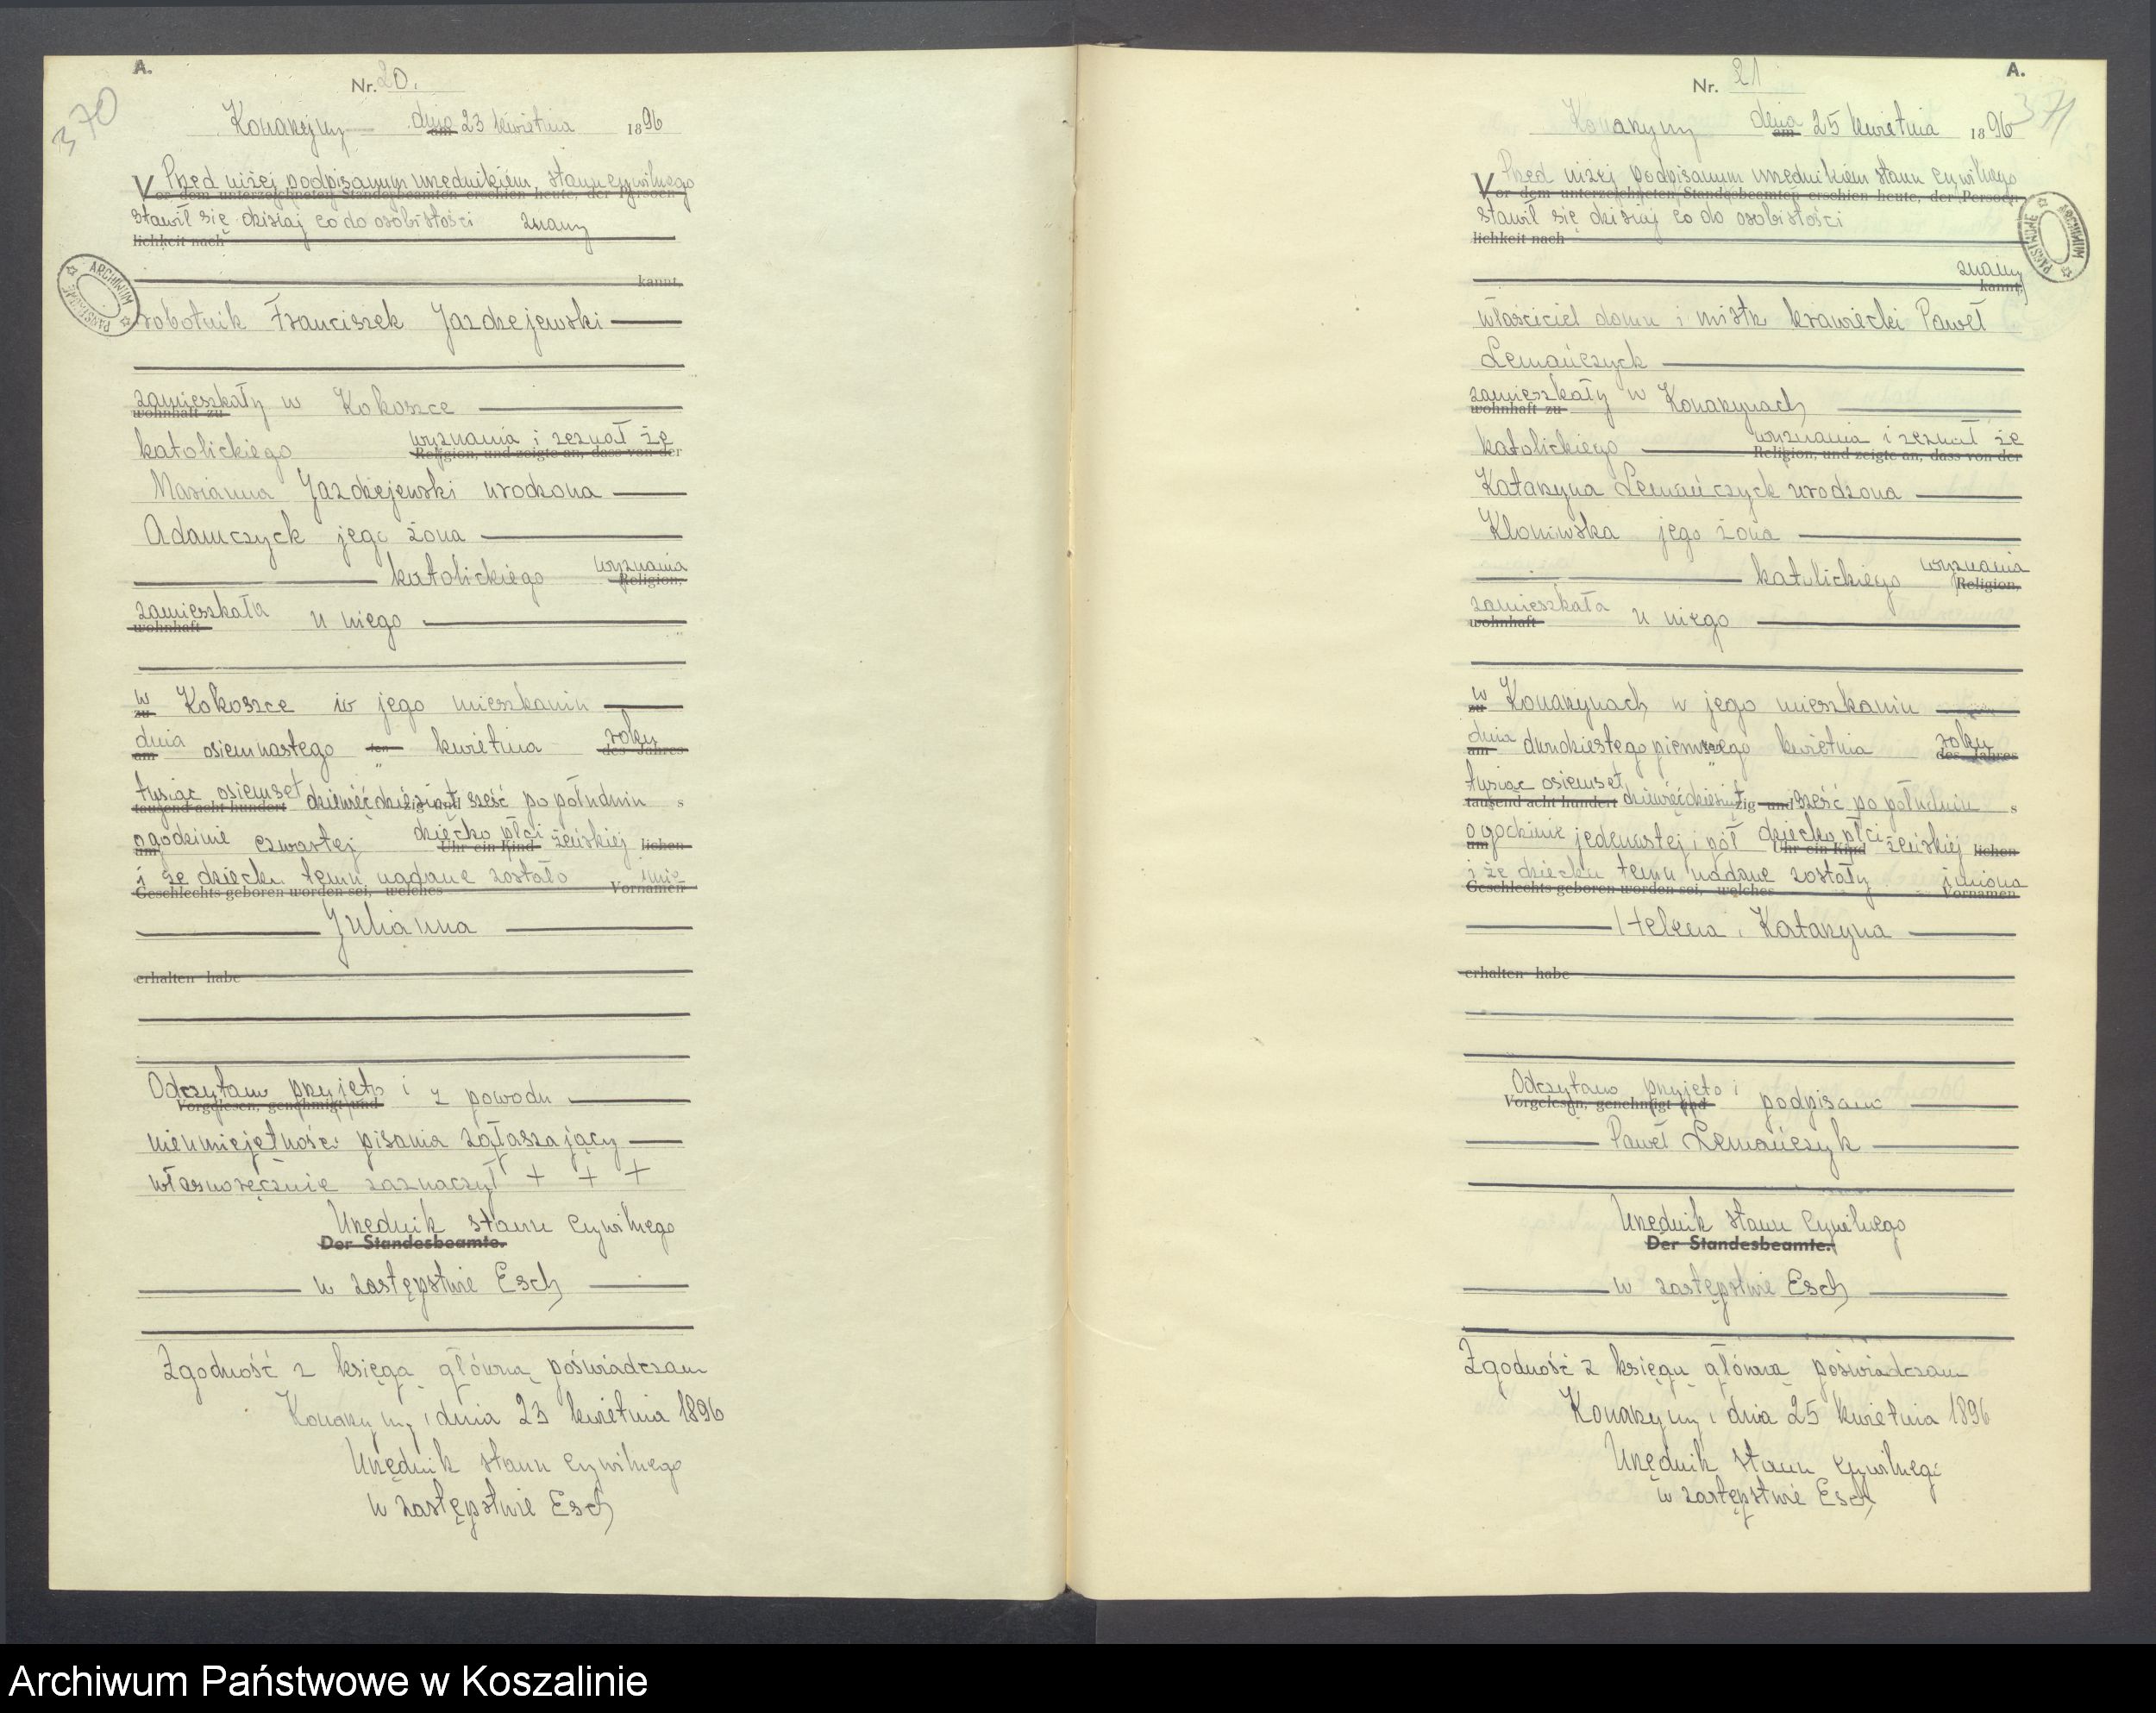 A.
370
Nr. 20.
Konarzyny dnia am 23 kwietnia 1896
Przed niżej podpisanym urzędnikiem stanu cywilnego
Vor dem unterzeichneten Standesbeamten erschien heute, der Persoen-
stawił się dzisiaj co do osobistości znany
lichkeit nach
kannt,
ARCHIWUM PAŃSTWOWE
robotnik Franciszek Jazdzejewski
zamieszkały w Kokoszce
wohnhaft zu
katolickiego wyznania i zeznał że
Religion, und zeigte an, dass von der
Marianna Jazdzejewski urodzona
Adamczyck jego żona
katolickiego wyznania
Religion,
zamieszkała u niego
wohnhaft
w Kokoszce w jego mieszkaniu
zu
dnia osiemnastego ten kwietnia roku
am des Jahres
tysiąc osiemset dziewięćdziesiąt sześć po południu s
tausend acht hundert
o godzinie czwartej dziecko płci żeńskiej
um Uhr ein Kind lichen
i że dziecku temu nadane zostało imię
Geschlechts geboren worden sei, welches Vornamen
Julianna
erhalten habe
Odczytano przyjęto i z powodu
Vorgelesen, genehmigt und
nieumiejętności pisania zgłaszający
własnoręcznie zaznaczył + + +
Urzędnik stanu cywilnego
Der Standesbeamte.
w zastępstwie Esch
Zgodność z księgą główną poświadczam
Konarzyny, dnia 23 kwietnia 1896
Urzędnik stanu cywilnego
w zastępstwie Esch
A.
371
Nr. 21
Konarzyny dnia am 25 kwietnia 1896
Przed niżej podpisanym urzędnikiem stanu cywilnego
Vor dem unterzeichneten Standesbeamten erschien heute, der Persoen-
stawił się dzisiaj co do osobistości
lichkeit nach
znany
kannt,
ARCHIWUM PAŃSTWOWE
właściciel domu i mistrz krawiecki Paweł
Lemańczyck
zamieszkały w Konarzynach
wohnhaft zu
katolickiego wyznania i zeznał że
Religion, und zeigte an, dass von der
Katarzyna Lemańczyck urodzona
Kloniwska jego żona
katolickiego wyznania
Religion,
zamieszkała u niego
wohnhaft
w Konarzynach w jego mieszkaniu
zu
dnia dwudziestego pierwszego kwietnia roku
am des Jahres
tysiąc osiemset dziewięćdziesiąt sześć po południu s
tausend acht hundert zig und
o godzinie jedenastej i pół dziecko płci żeńskiej
um Uhr ein Kind lichen
i że dziecku temu nadane zostały imiona
Geschlechts geboren worden sei, welches Vornamen
Helena, Katarzyna
erhalten habe
Odczytano przyjęto i podpisano
Vorgelesen, genehmigt und
Paweł Lemańczyk
Urzędnik stanu cywilnego
Der Standesbeamte.
w zastępstwie Esch
Zgodność z księgą główną poświadczam
Konarzyny, dnia 25 kwietnia 1896
Urzędnik stanu cywilnego
w zastępstwie Esch
Archiwum Państwowe w Koszalinie